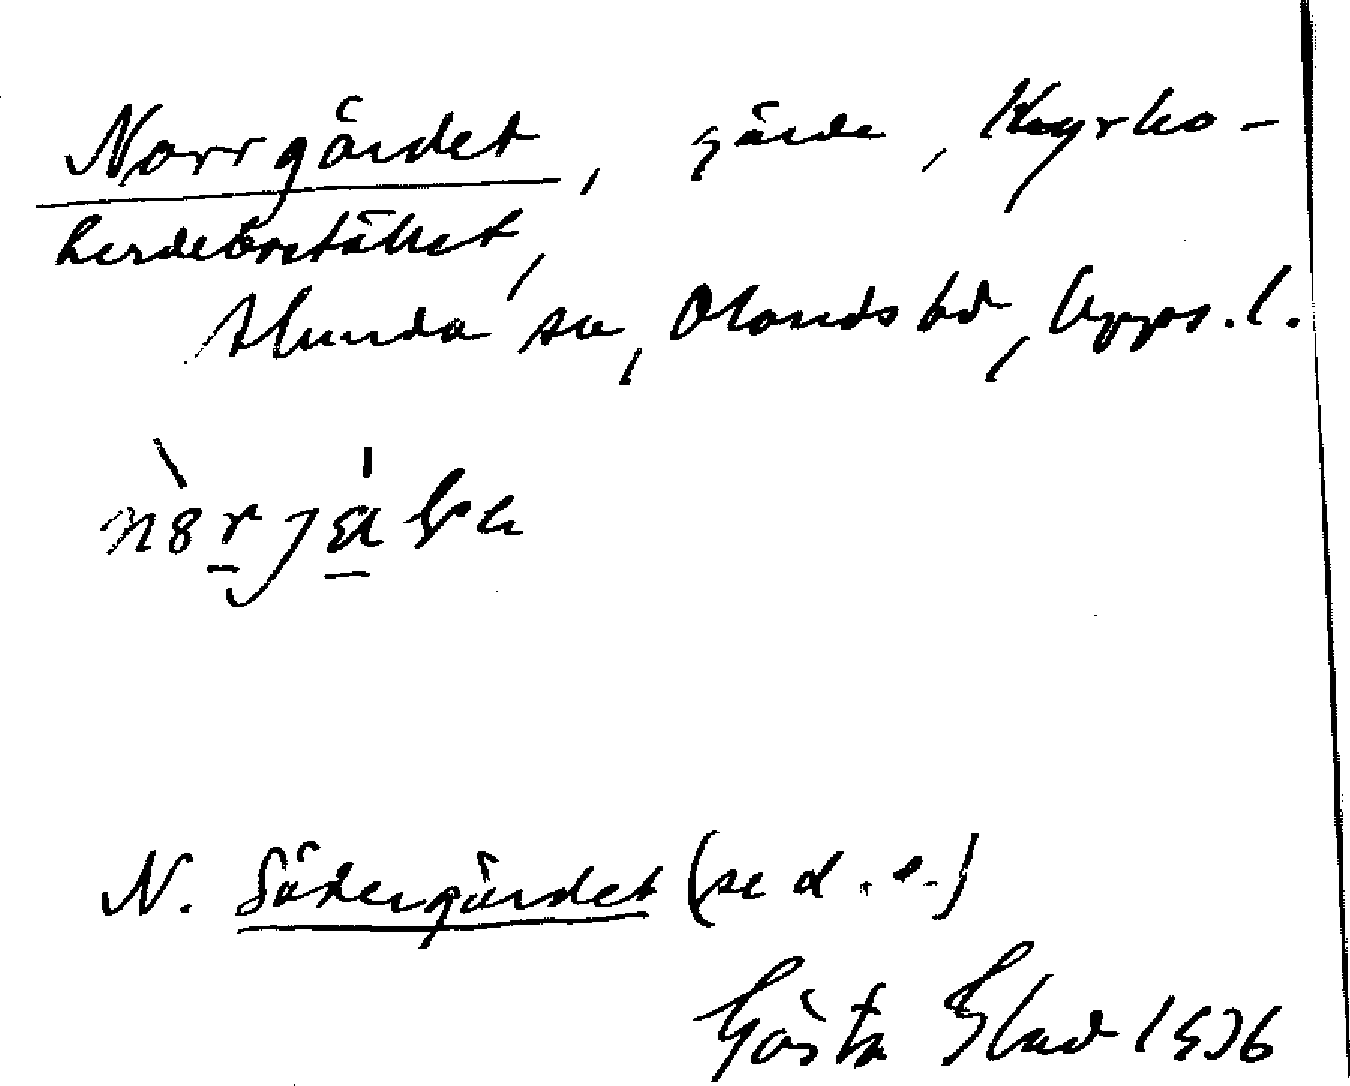 Norrgärdet, gärde, Kyrko-
herdebostället,
Alunda sn, Olands hd, Upps. l.
N. Södergärdet (se d. o.)
Gösta Blad 1936